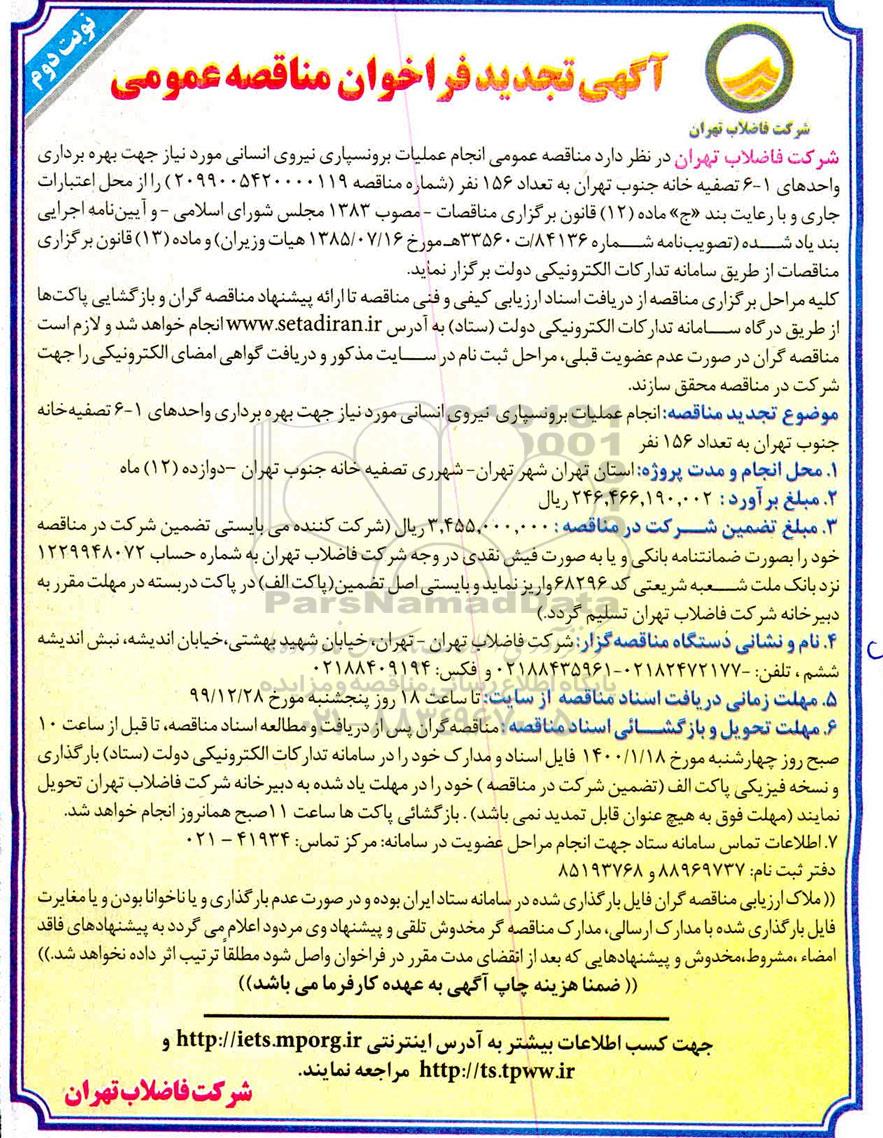 نوبت دوم
آگهی تجدید فراخوان مناقصه عمومی
شرکت فاضلاب تهران
شرکت فاضلاب تهران در نظر دارد مناقصه عمومی انجام عملیات برونسپاری نیروی انسانی مورد نیاز جهت بهره برداری
واحدهای ۱-۶ تصفیه خانه جنوب تهران به تعداد ۱۵۶ نفر (شماره مناقصه ۲۰۹۹۰۰۵۴۲۰۰۰۰۱۱۹) را از محل اعتبارات
جاری و با رعایت بند «ج» ماده (۱۲) قانون برگزاری مناقصات -مصوب ۱۳۸۳ مجلس شورای اسلامی - و آیین‌نامه اجرایی
بند یاد شده (تصویب‌نامه شماره ۸۴۱۳۶/ت۳۳۵۶۰هـ مورخ ۱۳۸۵/۰۷/۱۶ هیات وزیران) و ماده (۱۳) قانون برگزاری
مناقصات از طریق سامانه تدارکات الکترونیکی دولت برگزار نماید.
کلیه مراحل برگزاری مناقصه از دریافت اسناد ارزیابی کیفی و فنی مناقصه تا ارائه پیشنهاد مناقصه گران و بازگشایی پاکت‌ها
از طریق درگاه سامانه تدارکات الکترونیکی دولت (ستاد) به آدرس www.setadiran.ir انجام خواهد شد و لازم است
مناقصه گران در صورت عدم عضویت قبلی، مراحل ثبت نام در سایت مذکور و دریافت گواهی امضای الکترونیکی را جهت
شرکت در مناقصه محقق سازند.
موضوع تجدید مناقصه: انجام عملیات برونسپاری نیروی انسانی مورد نیاز جهت بهره برداری واحدهای ۱-۶ تصفیه‌خانه
جنوب تهران به تعداد ۱۵۶ نفر
۱. محل انجام و مدت پروژه: استان تهران شهر تهران- شهرری تصفیه خانه جنوب تهران –دوازده (۱۲) ماه
۲. مبلغ برآورد : ۲۴۶,۴۶۶,۱۹۰,۰۰۲ ریال
۳. مبلغ تضمین شرکت در مناقصه : ۳,۴۵۵,۰۰۰,۰۰۰ ریال (شرکت کننده می بایستی تضمین شرکت در مناقصه
خود را بصورت ضمانتنامه بانکی و یا به صورت فیش نقدی در وجه شرکت فاضلاب تهران به شماره حساب ۱۲۲۹۹۴۸۰۷۲
نزد بانک ملت شعبه شریعتی کد ۶۸۲۹۶ واریز نماید و بایستی اصل تضمین(پاکت الف) در پاکت دربسته در مهلت مقرر به
دبیرخانه شرکت فاضلاب تهران تسلیم گردد.)
۴. نام و نشانی دستگاه مناقصه‌گزار: شرکت فاضلاب تهران - تهران، خیابان شهید بهشتی،خیابان اندیشه، نبش اندیشه
ششم ، تلفن: -۰۲۱۸۲۴۷۲۱۷۷-۰۲۱۸۸۴۳۵۹۶۱ و فکس: ۰۲۱۸۸۴۰۹۱۹۴
۵. مهلت زمانی دریافت اسناد مناقصه از سایت: تا ساعت ۱۸ روز پنجشنبه مورخ ۹۹/۱۲/۲۸
۶. مهلت تحویل و بازگشائی اسناد مناقصه: مناقصه گران پس از دریافت و مطالعه اسناد مناقصه، تا قبل از ساعت ۱۰
صبح روز چهارشنبه مورخ ۱۴۰۰/۱/۱۸ فایل اسناد و مدارک خود را در سامانه تدارکات الکترونیکی دولت (ستاد) بارگذاری
و نسخه فیزیکی پاکت الف (تضمین شرکت در مناقصه ) خود را در مهلت یاد شده به دبیرخانه شرکت فاضلاب تهران تحویل
نمایند (مهلت فوق به هیچ عنوان قابل تمدید نمی باشد) . بازگشائی پاکت ها ساعت ۱۱صبح همانروز انجام خواهد شد.
۷. اطلاعات تماس سامانه ستاد جهت انجام مراحل عضویت در سامانه: مرکز تماس: ۴۱۹۳۴ - ۰۲۱
دفتر ثبت نام: ۸۸۹۶۹۷۳۷ و ۸۵۱۹۳۷۶۸
(( ملاک ارزیابی مناقصه گران فایل بارگذاری شده در سامانه ستاد ایران بوده و در صورت عدم بارگذاری و یا ناخوانا بودن و یا مغایرت
فایل بارگذاری شده با مدارک ارسالی، مدارک مناقصه گر مخدوش تلقی و پیشنهاد وی مردود اعلام می گردد به پیشنهادهای فاقد
امضاء ،مشروط،مخدوش و پیشنهادهایی که بعد از انقضای مدت مقرر در فراخوان واصل شود مطلقاً ترتیب اثر داده نخواهد شد.))
(( ضمنا هزینه چاپ آگهی به عهده کارفرما می باشد))
جهت کسب اطلاعات بیشتر به آدرس اینترنتی http://iets.mporg.ir و
http://ts.tpww.ir مراجعه نمایند.
شرکت فاضلاب تهران
ParsNamadData